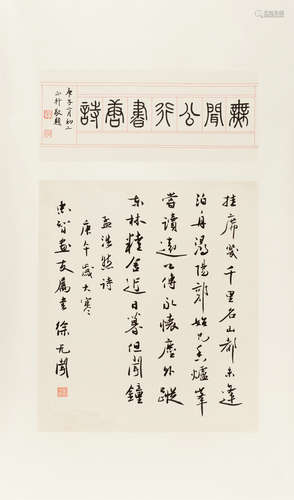 無聞公行書唐詩
庚子八月初二
挂席幾千里名山都未逢
泊舟潯陽郭始見香爐峯
嘗讀遠公傳永懷塵外蹤
東林精舍近日暮但聞鐘
孟浩然詩
庚午歲大寒
畫友屬書 徐无聞